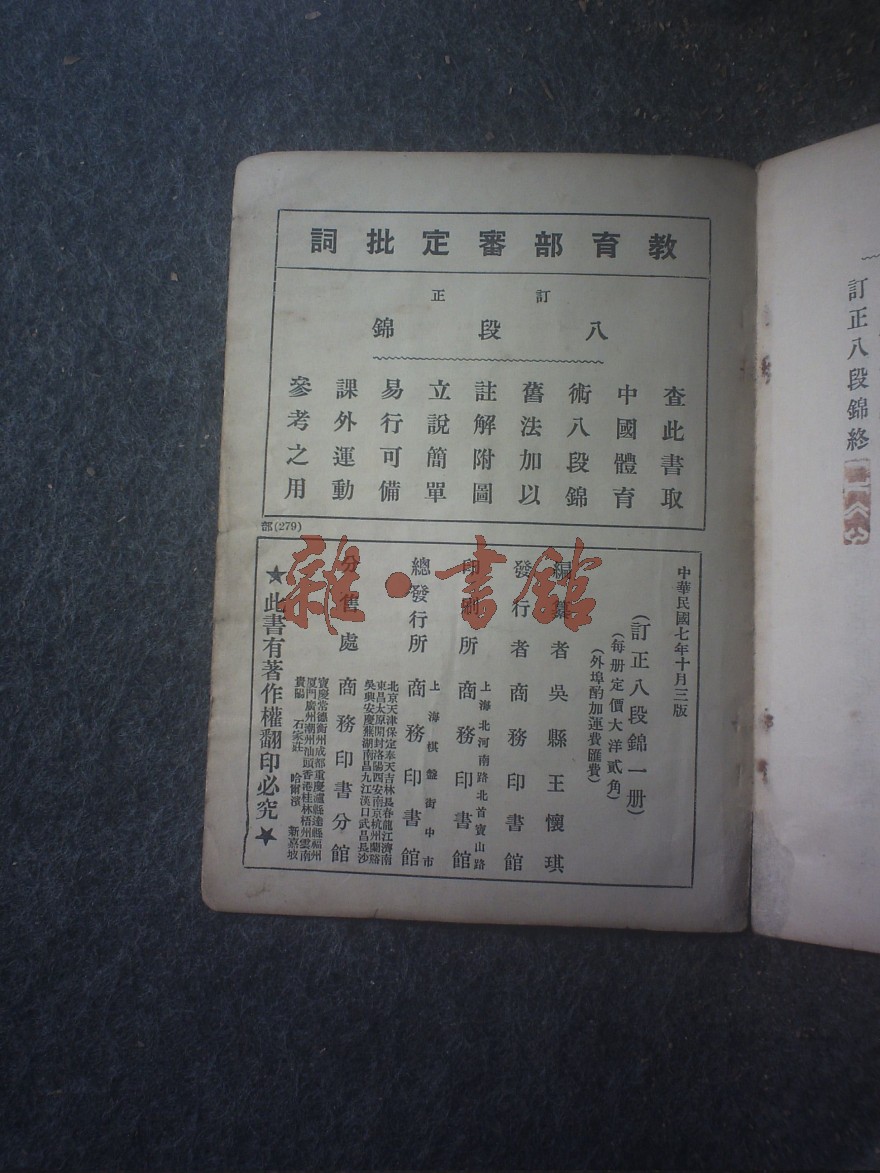 訂正八段錦終
教育部審定批詞
訂正
八段錦
查此書取
中國體育
術八段錦
舊法加以
註解附圖
立說簡單
易行可備
課外運動
參考之用
部(279)
中華民國七年十月三版
(訂正八段錦一册)
(每册定價大洋貳角)
(外埠酌加運費匯費)
編纂者 吳縣王懷琪
發行者 商務印書館
印刷所 上海北河南路北首寶山路 商務印書館
總發行所 上海棋盤街中市 商務印書館
分售處 商務印書分館
北京天津保定奉天吉林長春龍江濟南
東昌太原開封洛陽西安南京杭州蘭谿
吳興安慶蕪湖南昌九江漢口武昌長沙
寶慶常德衡州成都重慶瀘縣達縣福州
厦門廣州潮州汕頭香港桂林梧州雲南
貴陽 石家莊 哈爾濱 新嘉坡
★此書有著作權翻印必究★
雜·書館